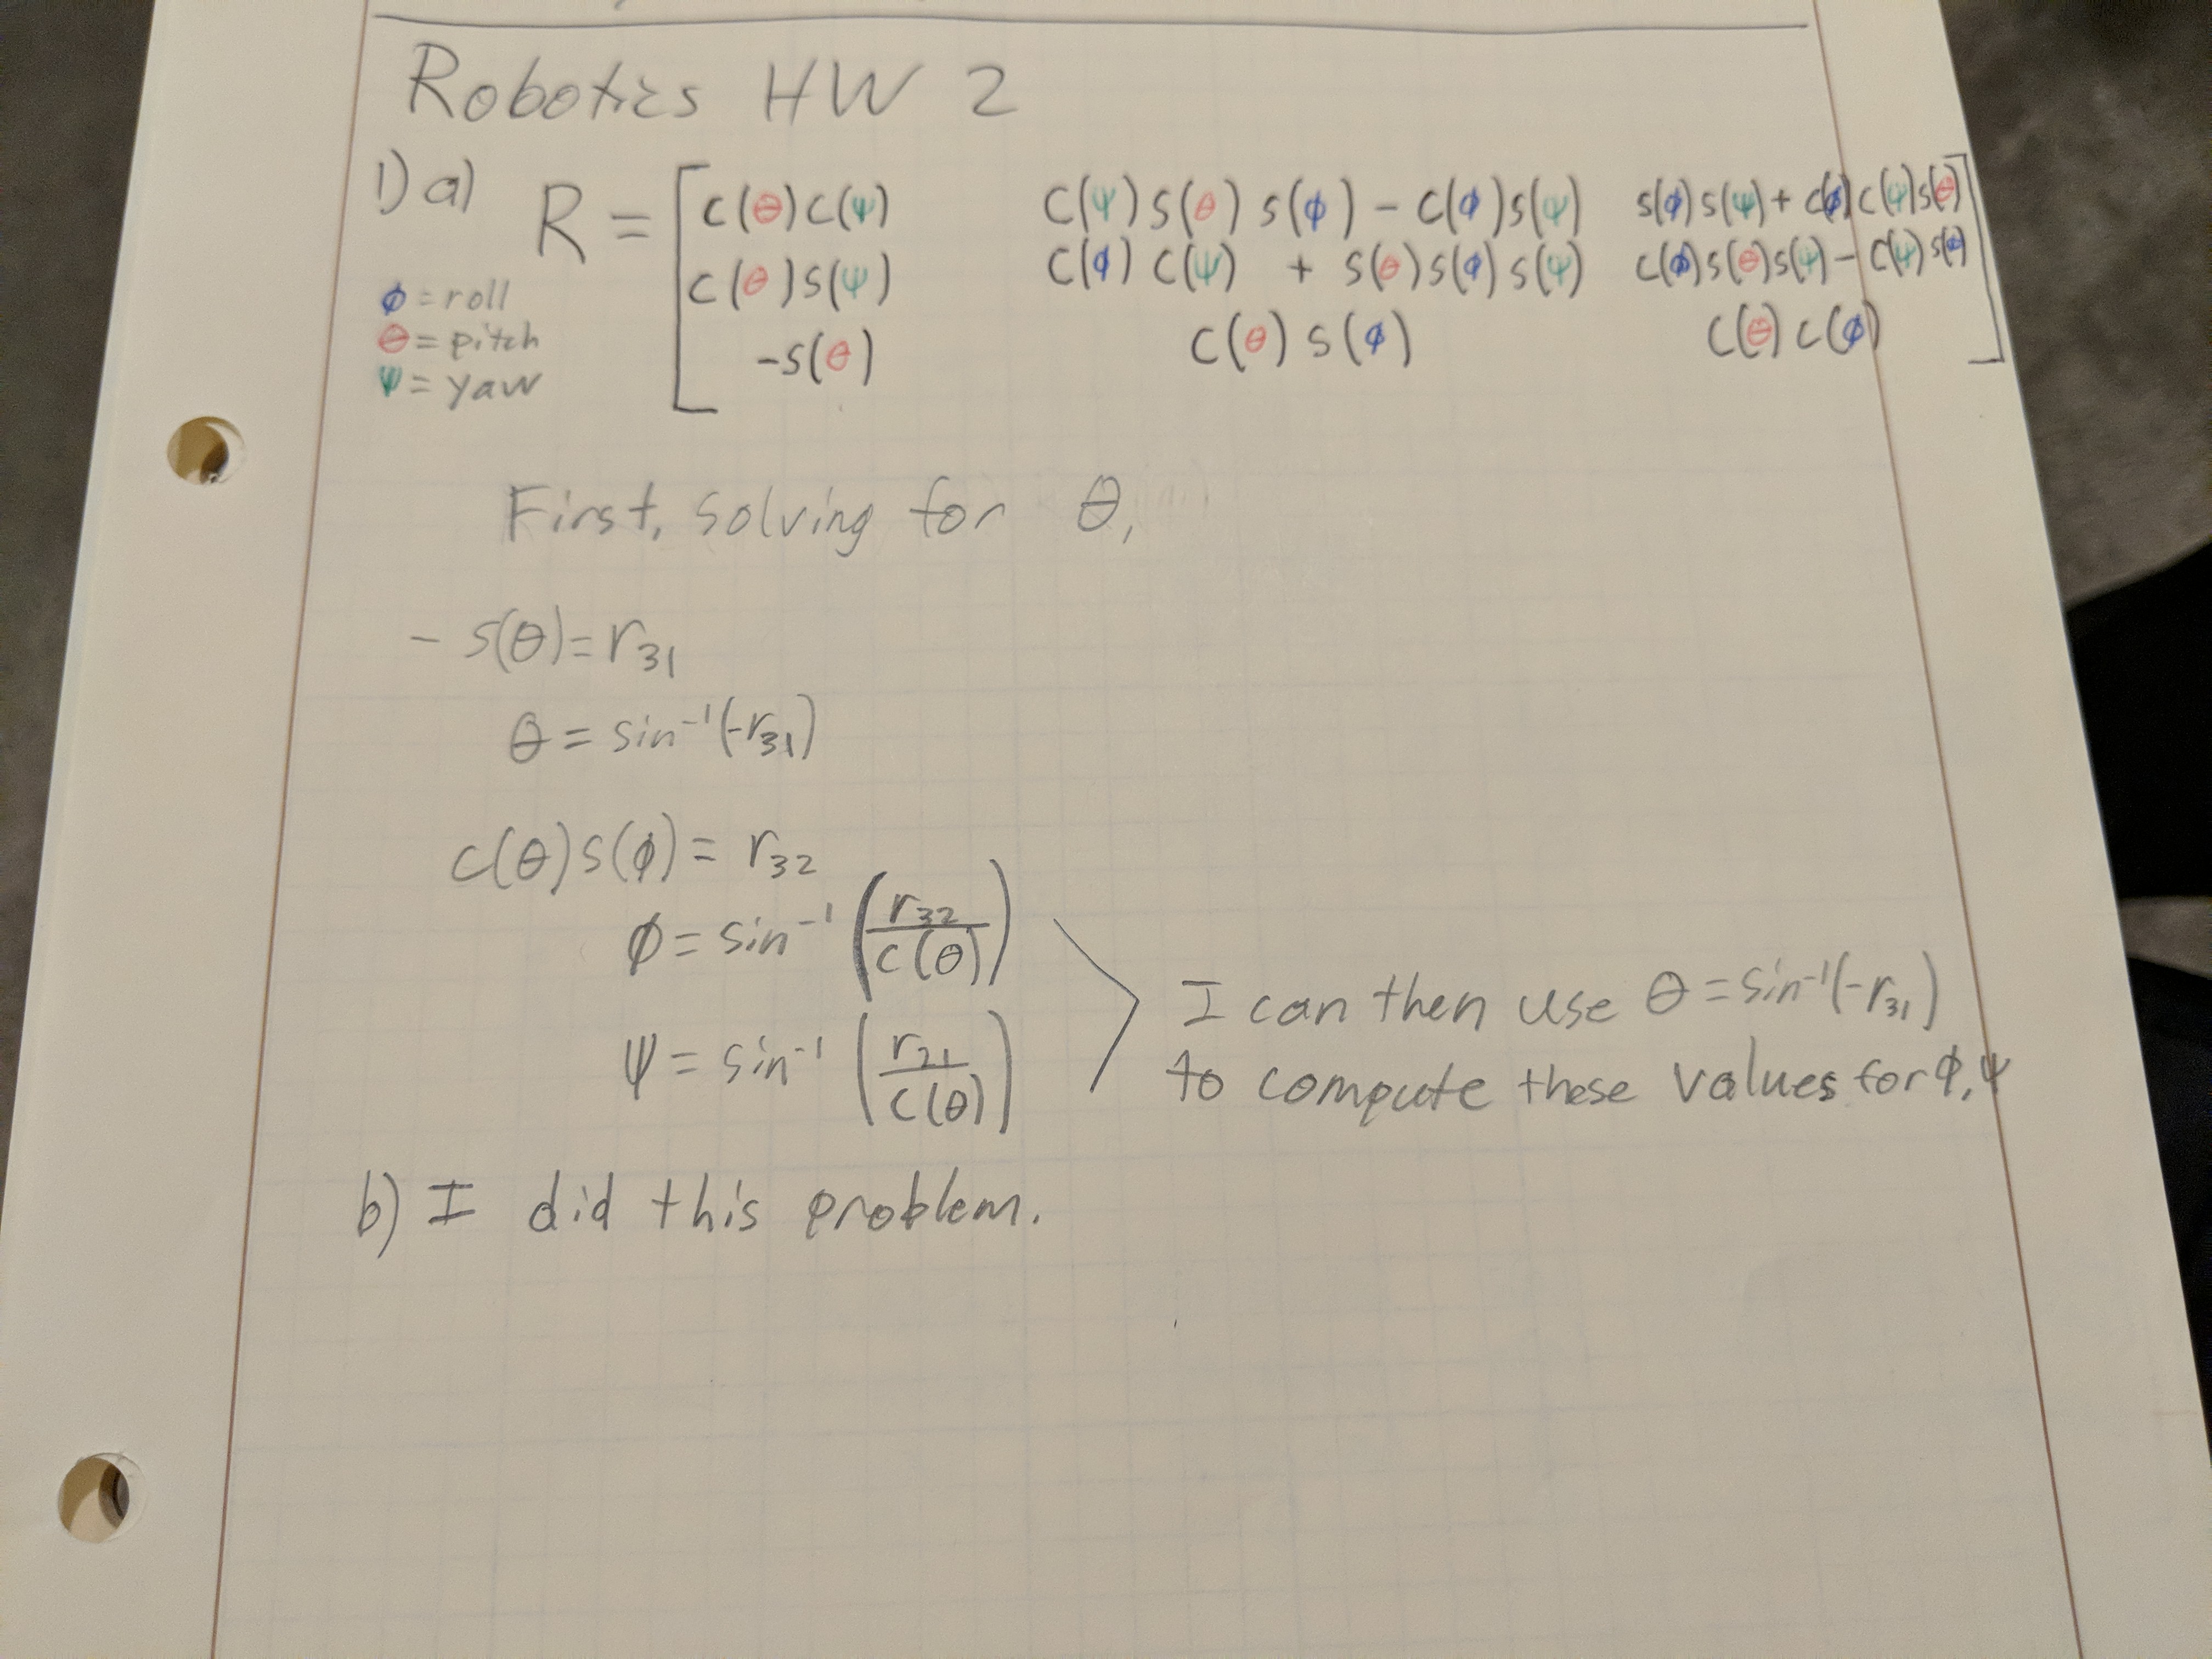 Robotics HW 2
1) a) R = [ c(θ)c(ψ) c(ψ)s(θ)s(ϕ) - c(ϕ)s(ψ) s(ϕ)s(ψ) + c(ϕ)c(ψ)s(θ)
c(θ)s(ψ) c(ϕ)c(ψ) + s(θ)s(ϕ)s(ψ) c(ϕ)s(θ)s(ψ) - c(ψ)s(ϕ)
-s(θ) c(θ)s(ϕ) c(θ)c(ϕ) ]
ϕ = roll
θ = pitch
ψ = yaw
First, solving for θ,
- s(θ) = r₃₁
θ = sin⁻¹(-r₃₁)
c(θ)s(ϕ) = r₃₂
ϕ = sin⁻¹(r₃₂/c(θ))
ψ = sin⁻¹(r₂₁/c(θ))
I can then use θ = sin⁻¹(-r₃₁)
to compute these values for ϕ, ψ
b) I did this problem.